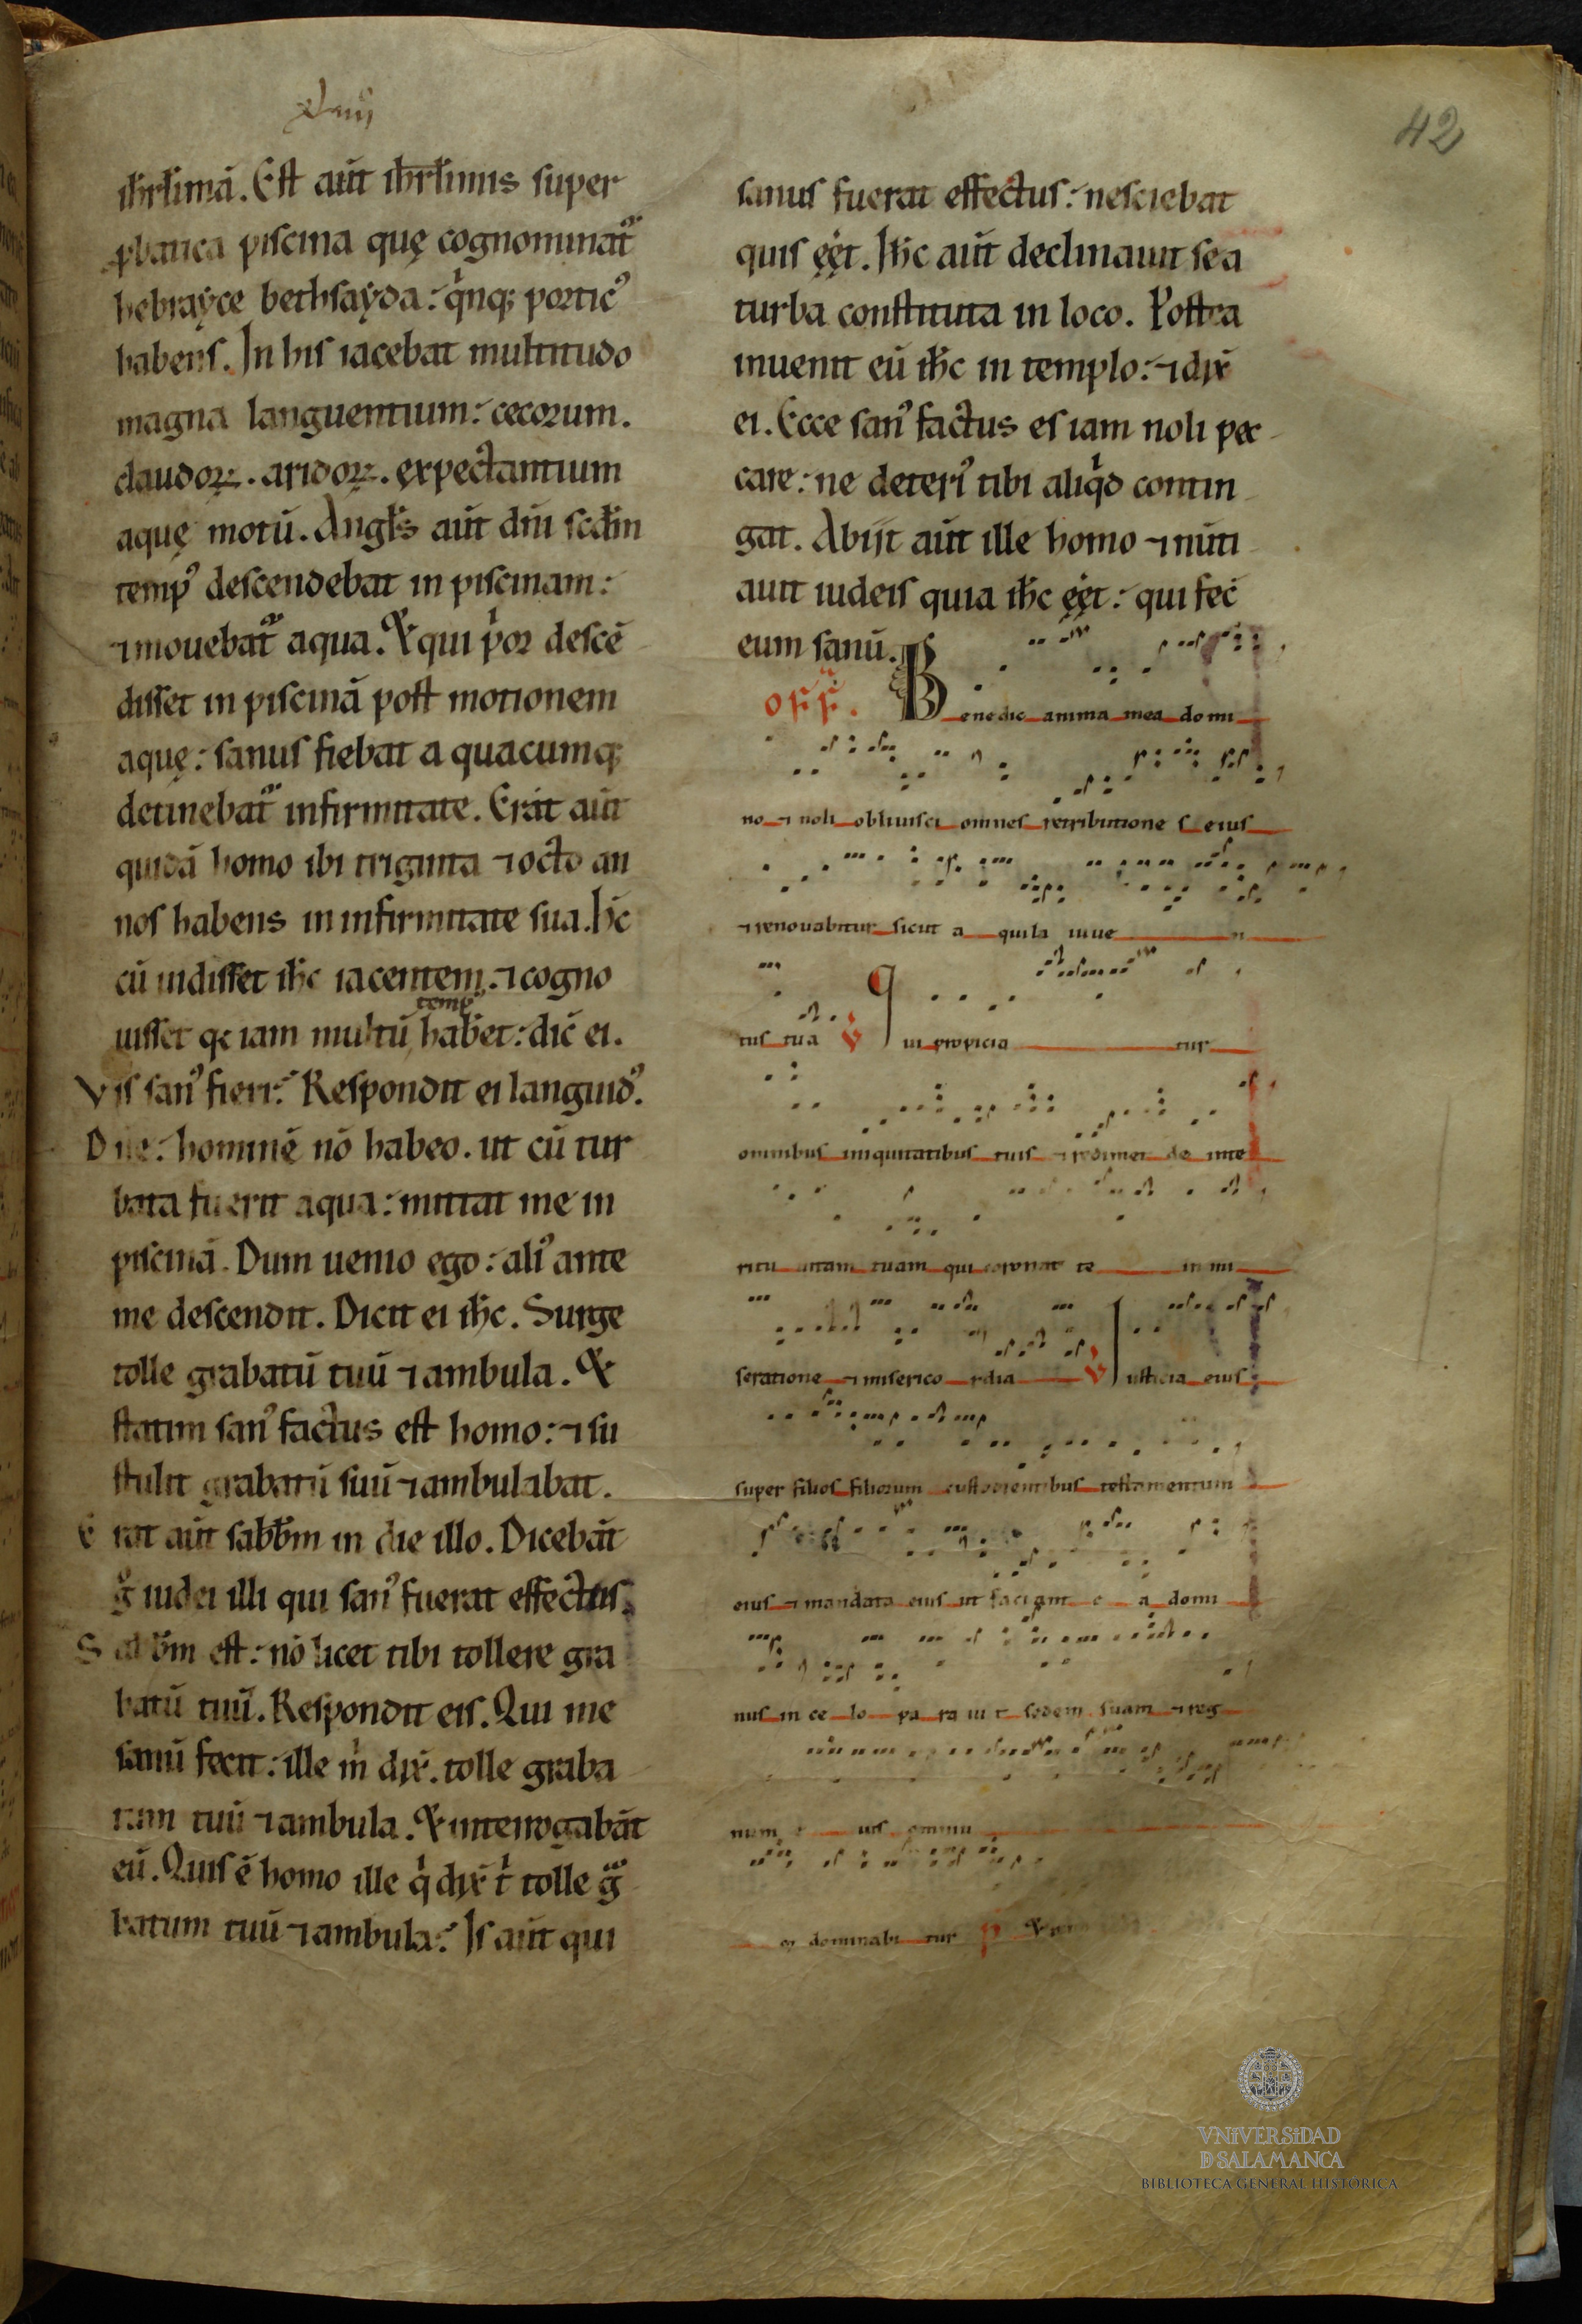 xliiij
42
ihrłimā. Est aūt ihrłimis super
ꝓbatica piscina quę cognominat᷑
hebraẏce bethsaẏda: qͥnqꝫ porticꝰ
habens. In his iacebat multitudo
magna languentium: cecorum.
claudoꝝ. aridoꝝ. expectantium
aquę motū. Angł̄s aūt dn̄i scdm̄
tempꝰ descendebat in piscinam:
⁊ mouebat᷑ aqua. Et qui pͥor descē
disset in piscinā post motionem
aquę: sanus fiebat a quacumqꝫ
detinebat᷑ infirmitate. Erat aūt
quidā homo ibi triginta ⁊ octo an
nos habens in infirmitate sua. h̄c
cū uidisset ih̄c iacentem. ⁊ cogno
tempꝰ
uisset qꝛ iam multū hab̄et: dic̄ ei.
Vis sanꝰ fieri? Respondit ei languidꝰ.
Dn̄e: hominē nō habeo. ut cū tur
bata fuerit aqua: mittat me in
piscinā. Dum uenio ego: aliꝰ ante
me descendit. Dicit ei ih̄c. Surge
tolle grabatū tuū ⁊ ambula. Et
statim sanꝰ factus est homo: ⁊ su
stulit grabatū suū ⁊ ambulabat.
Erat aūt sabb̄m in die illo. Dicebāt
gͦ iudei illi qui sanꝰ fuerat effectus.
Sabb̄m est: nō licet tibi tollere gra
batū tuū. Respondit eis. Qui me
sanū fecit: ille mͥ dix̄. tolle graba
tum tuū ⁊ ambula. Et interrogabāt
eū. Quis ē homo ille qͥ dix̄ tͥ tolle gᷓ
batum tuū ⁊ ambula? Is aūt qui
sanus fuerat effectus: nesciebat
quis eēt. Ih̄c aūt declinauit se a
turba constituta in loco. Postea
inuenit eū ih̄c in templo: ⁊ dix̄
ei. Ecce sanꝰ factus es iam noli pec
care: ne deteriꝰ tibi aliqͥd contin
gat. Abijt aūt ille homo ⁊ nūti
auit iudeis quia ih̄c eēt: qui fec̄
eum sanū.
off. Benedic anima mea domi
no ⁊ noli obliuisci omnes retributione s eius
⁊ renouabitur sicut a quila iuue n
tus tua ℣ Qui propicia tur
omnibus iniquitatibus tuis ⁊ redimet de inte
ritu uitam tuam qui coronat te in mi
seratione ⁊ miserico rdia ℣ Iusticia eius
super filios filiorum custodientibus testamentum
eius ⁊ mandata eius ut faciant e a domi
nus in ce lo pa ra ui t sedem suam ⁊ reg
num e ius omniu
m dominabi tur
VNiVERSiDAD
D SALAMANCA
BIBLIOTECA GENERAL HISTÓRICA